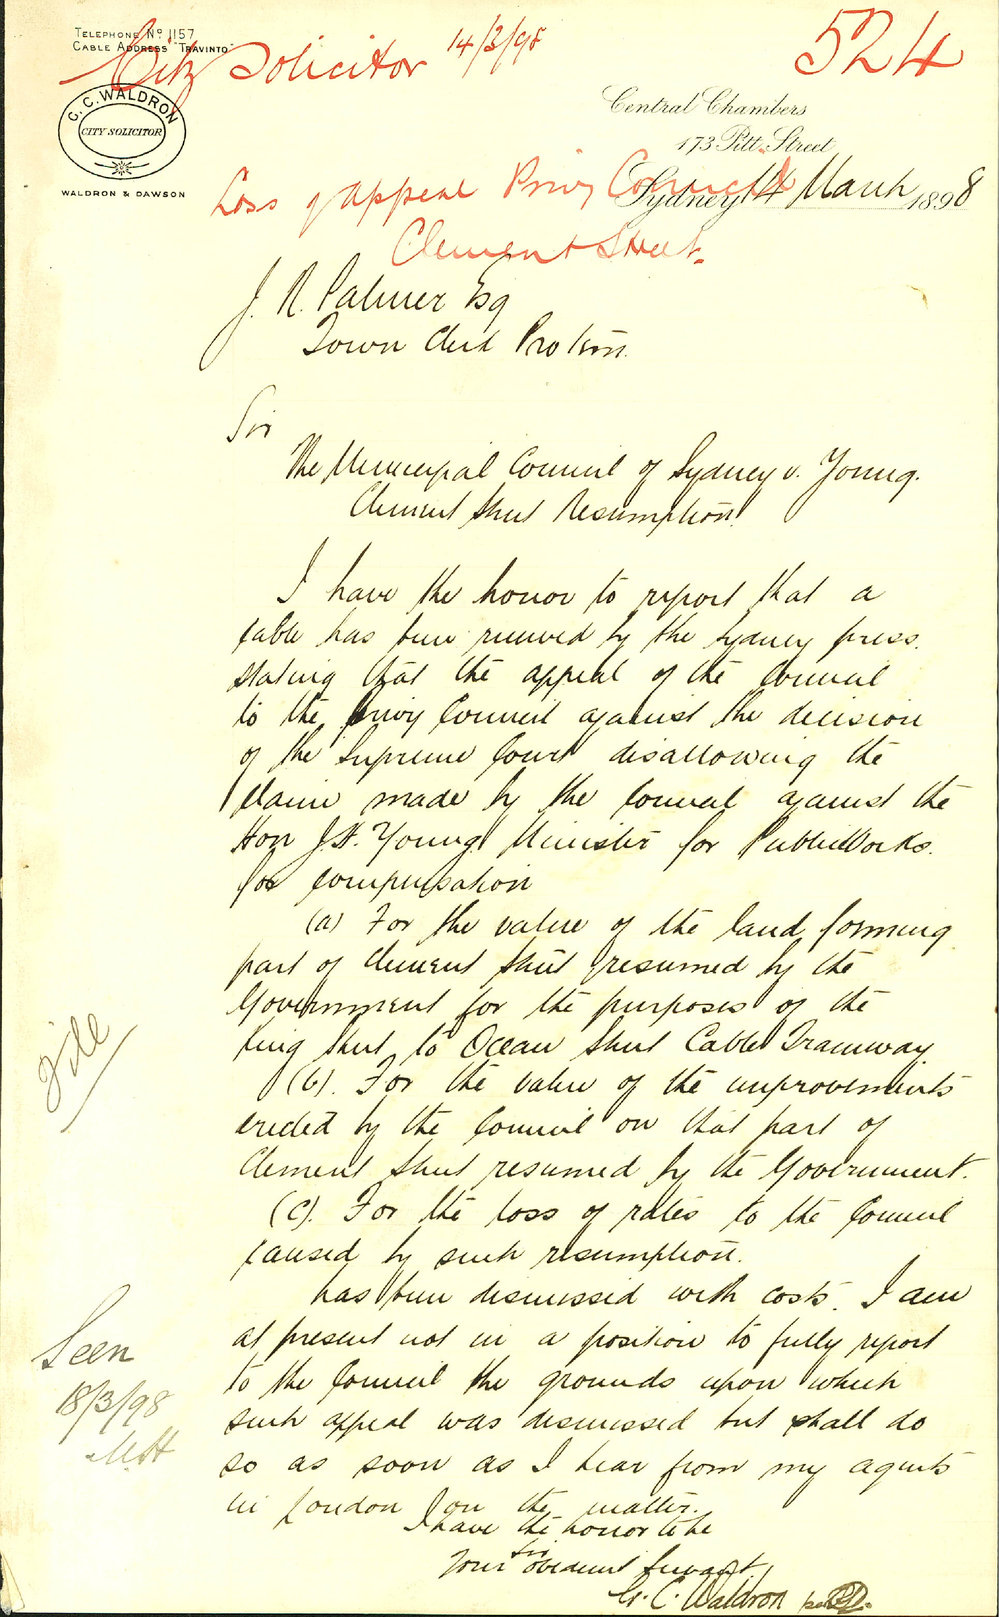 TELEPHONE Nº 1157
CABLE ADDRESS "TRAVINTO"
City Solicitor 14/3/98
524
C. C. WALDRON
CITY SOLICITOR
WALDRON & DAWSON
Central Chambers
173 Pitt Street
Sydney 14 March 1898
Loss of appeal Privy Council
Clement Street.
J. R. Palmer Esq
Town Clerk Pro tem.
Sir
The Municipal Council of Sydney v. Young.
Clement Street Resumption.
I have the honor to report that a
cable has been received by the Sydney press.
stating that the appeal of the Council
to the Privy Council against the decision
of the Supreme Court disallowing the
claim made by the Council against the
Hon J. H. Young Minister for Public Works.
for compensation
(a) For the value of the land forming
part of Clement Street resumed by the
Government for the purposes of the
King Street to Ocean Street Cable Tramway.
(b). For the value of the improvements
erected by the Council on that part of
Clement Street resumed by the Government.
(c). For the loss of rates to the Council
caused by such resumption.
has been dismissed with costs. I am
at present not in a position to fully report
to the Council the grounds upon which
such appeal was dismissed but shall do
so as soon as I hear from my agents
in London on the matter.
I have the honor to be
Sir
Your obedient Servant
G. C. Waldron
file
Seen
18/3/98